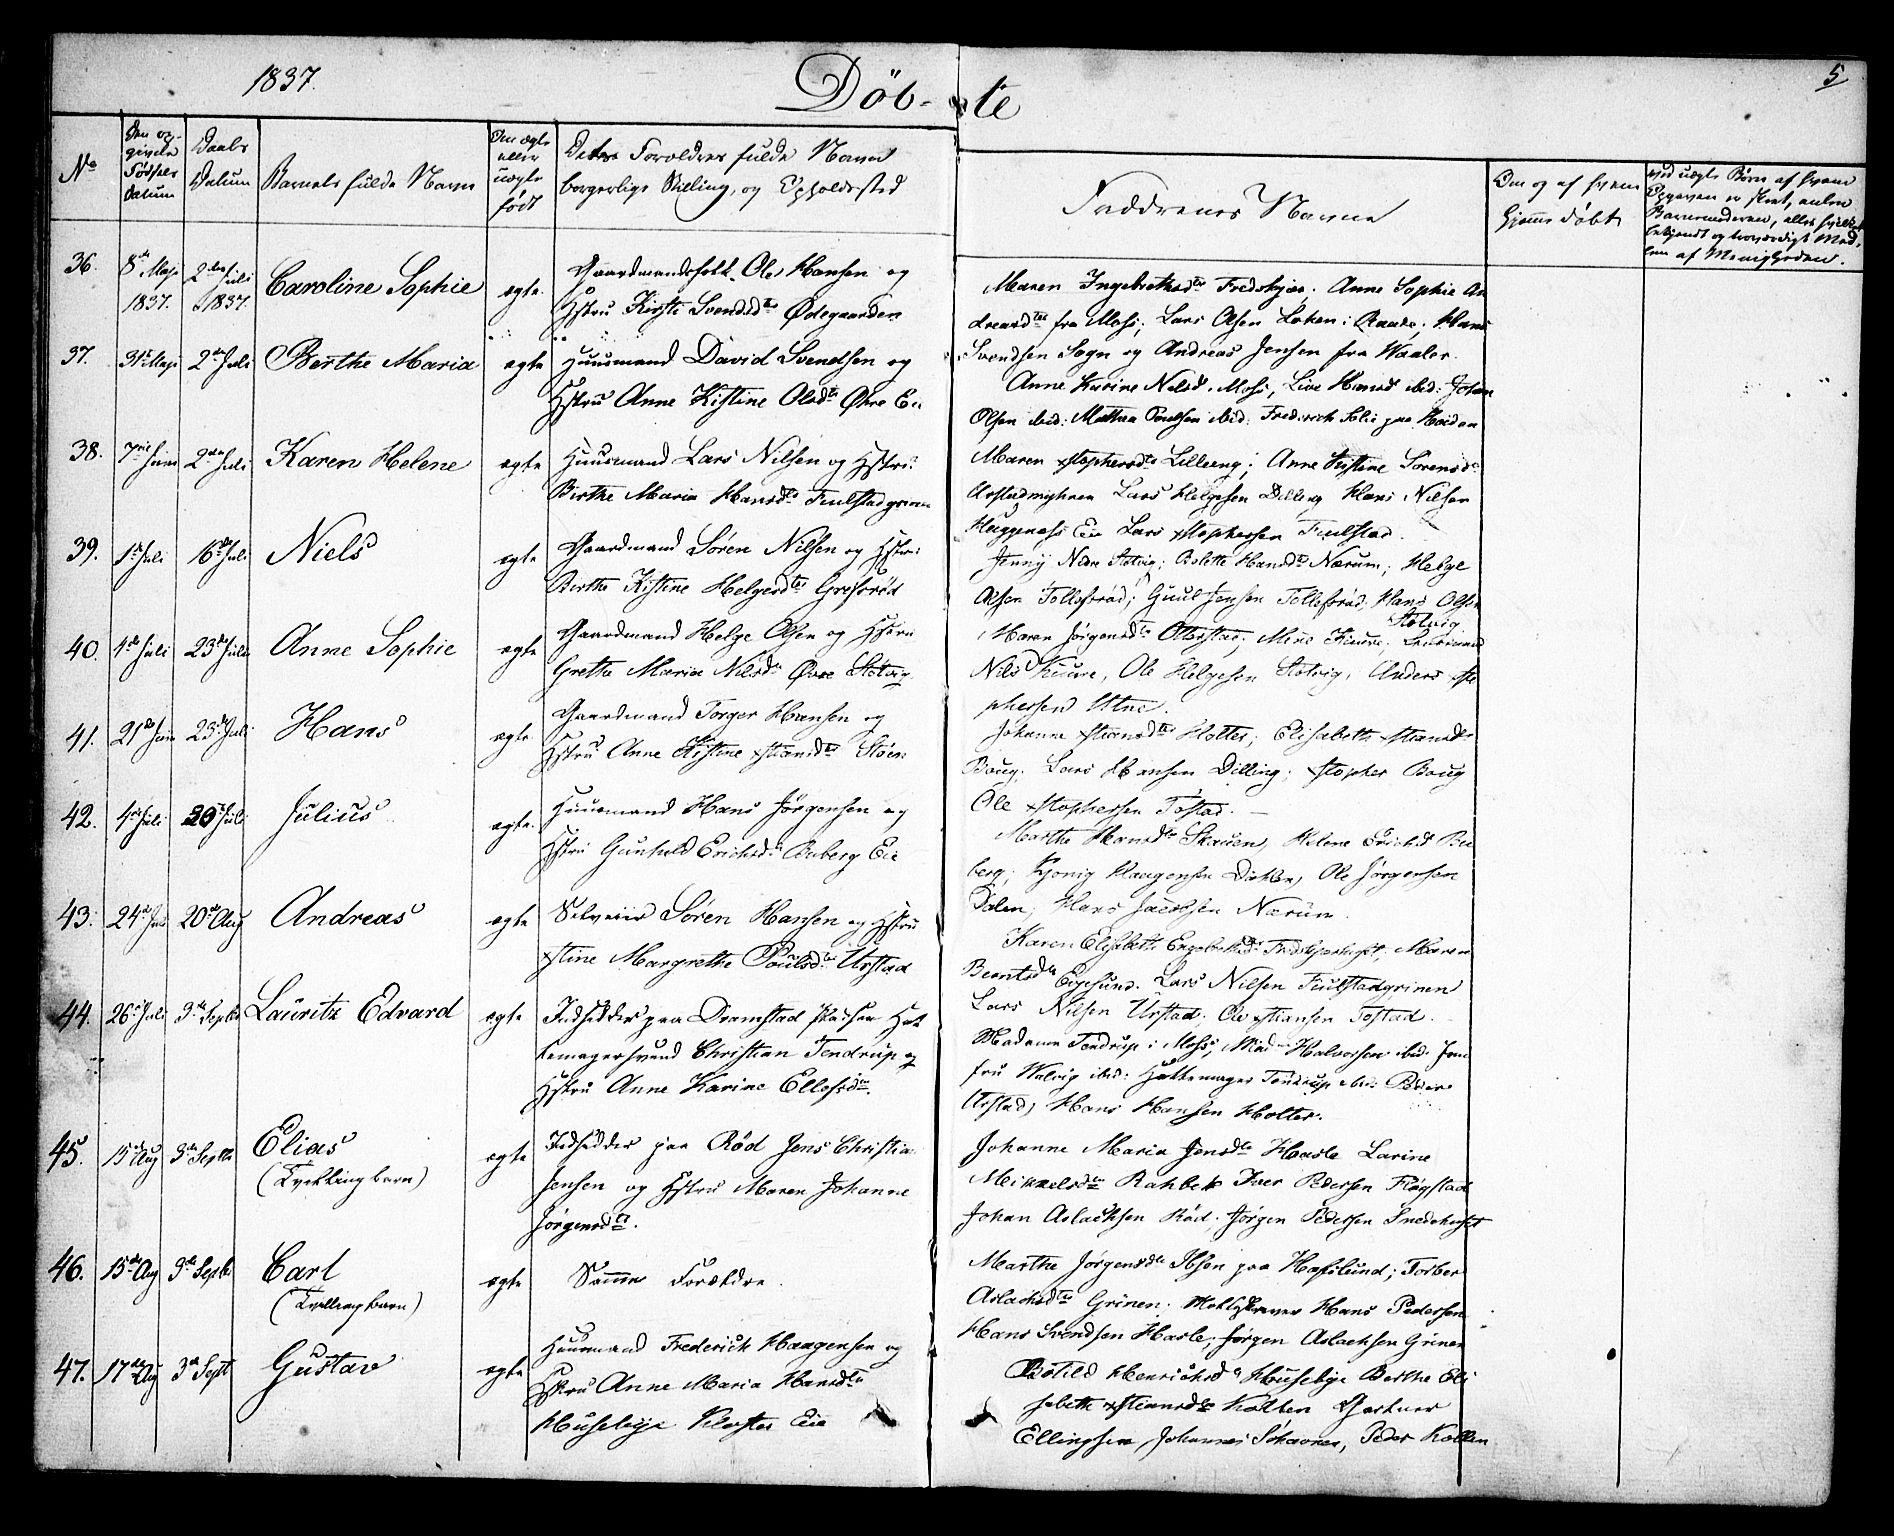 1837.
Döb- te
5
No
Den op-
givele
Fødsels
Datum
Daabs
Datum
Barnets fulde Navn
Om ægte
eller
uægte
født
Deres Forældres fulde Navne
borgerlige Stilling, og Opholdssted
Faddrenes Navne
Om og af hvem
hjemme døbt
Ved uægte Børn af hvem
Opgaven er skeet, enten
Barnemoderen, eller hvilket
bekjendt og troværdigt Med
lem af Menigheden.
36. 8de Maji 2den Juli Caroline Sophie ægte. Gaardmandsfolk Ole Hansen og
1837. 1837. Hstru Kirsti Svendsdtr Ødegaarden
Maren Ingebrethsdtr Fredskjær. Anne Sophie An
dreasdtr fra Moss; Lars Olsen Løken i Raade; Hans
Svendsen Sogn og Andreas Jensen fra Waaler.
37. 31te Maji 2den Juli Berthe Maria ægte Huusmand David Svendsen og
Hstru Anne Kistine Olsdtr Øvre Eie
Anne Karine Nilsd. Moss, Live Hansd ibid: Johan
Olsen ibid: Mathea Poulsen ibid: Frederich Lolie paa Heiden
38. 7de Juni 2den Juli Karen Helene ægte Huusmand Lars Nilsen og Hstru
Birthe Maria Hansdtr Fiulstadgrinen
Maren Xstophersdtr Lilleeng; Anne Kistine Sørensdtr
Lars Helgesen Dilling Hans Nilsen
Huggenæss Eie Lars Xstophersen Fiulstad.
39. 1ste Juli 16de Juli Niels ægte Gaardmand Søren Nilsen og Hstru
Birthe Kistine Helgesdtr Grefsrød
Jenny Nedre Støtvig; Bolette Hansdtr Nærum; Helge
Olsen Tollefsrød; Guul Jensen Tollefsrød, Hans Olsen
Støtvig
40. 4de Juli 23de Juli Anne Sophie ægte Gaardmand Helge Olsen og Hstru
Grethe Maria Nilsdtr Øvre Støtvig
Maren Jørgensdtr Otterstad; Mine Kiure.
Nils Kiure, Ole Helgesen Støtvig, Anders Xsto
phersen Utne.
41. 21de Juni 23de Juli Hans ægte Gaardmand Torger Hansen og
Hstru Anne Kistine Xstiansdtr Støen
Johanne Xstiansdtr Holter; Elisabeth Xstiansdtr
Boug; Lars Hansen Dilling; Xstopher Boug
Ole Xstophersen Tostad.
42. 4de Juli Juli Julius ægte. Huusmand Hans Jørgensen og
Hstru Gunhild Erichsdtr Buberg Eie
Marthe Hansdtr Skauen, Helene Erichsd Bu
berg; Haagensen Ole Jørgensen
Dalen, Hans Jacobsen Nærum.
43. 24de Juli 20de Aug Andreas ægte Selveier Søren Hansen og Hstru
Xstine Margrethe Poulsdtr Urstad
Karen Elisabeth Maren
Berntsdtr Egesund. Lars Nilsen Fiulstadgrinen
Lars Nilsen Urstad; Ole Xstiansen Tostad.
44. 26de Juli 3de Septb Lauritz Edvard ægte Indsidder paa Dramstad Pladsen Hat
temagersvend Christian Tendrup og
Hstru Anne Karine Ellefsdtr.
Madame Tendrup i Moss; Mad Halvorsen ibid. Jom
fru Walvig ibid: Hattemager Tendrup ibid Peder
Urstad, Hans Hansen Holter.
45. 15de Aug 3de Septbr Elias ægte Indsidder paa Rød Jens Christia
(Tvillingbarn) Jensen og Hstru Maren Johanne
Jørgensdtr.
Johanne Maria Jensdtr Hasle Larine
Mikkelsdtr Rahbek Iver Pedersen Fløgstad
Johan Aslachsen Rød; Jørgen Pedersen Snedehuset
46. 15de Aug 3de Septb. Carl ægte Samme Forældre.
(Tvillingbarn)
Marthe Jørgensdtr Ilsen paa Hafslund; Torber
Aslachsdtr Grinen. Hans Pedersen
Hans Svendsen Hasle; Jørgen Aslachsen Grinen
47. 17de Aug 3de Septb Gustav ægte Huusmand Frederich Haagensen og
Hstru Anne Maria Hansdtr
Huseleije Kloster Eie
Botild Henrichsd Huseleije Berthe Eli
sabeth Xstiansdtr Kolten Gartner
Ellingsen, Johannes Peder Kollen